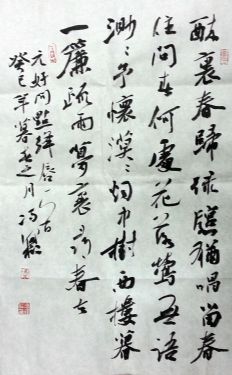 醉裏春歸緑窗猶唱留春
住問春何處花落鶯无語
渺〻予懷漠〻烟中樹西樓暮
一簾疏雨夢裏尋春去
元好问點絳唇一
癸巳年暮春之月冯